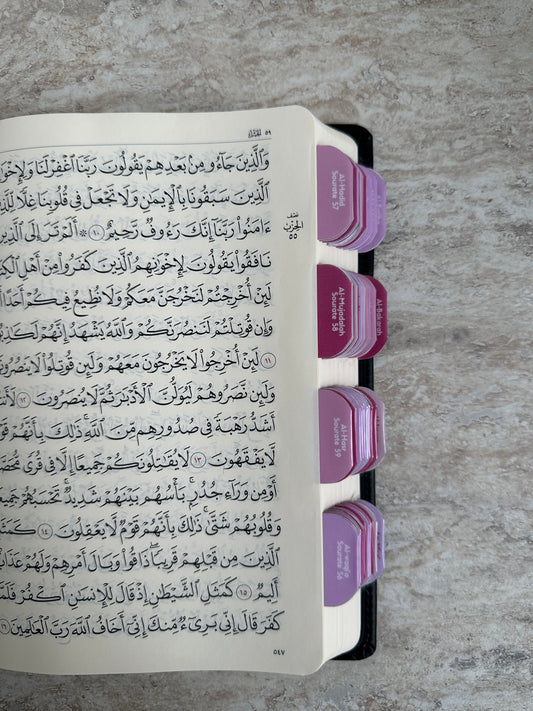 ٥٩ الحشر
وَٱلَّذِينَ جَآءُو مِنۢ بَعْدِهِمْ يَقُولُونَ رَبَّنَا ٱغْفِرْ لَنَا
ٱلَّذِينَ سَبَقُونَا بِٱلْإِيمَٰنِ وَلَا تَجْعَلْ فِى قُلُوبِنَا غِلًّا
ءَامَنُوا۟ رَبَّنَآ إِنَّكَ رَءُوفٌ رَّحِيمٌ ١٠ ۞ أَلَمْ تَرَ إِلَى
نَافَقُوا۟ يَقُولُونَ لِإِخْوَٰنِهِمُ ٱلَّذِينَ كَفَرُوا۟ مِنْ أَهْلِ
لَئِنْ أُخْرِجْتُمْ لَنَخْرُجَنَّ مَعَكُمْ وَلَا نُطِيعُ فِيكُمْ أَحَدًا
وَإِن قُوتِلْتُمْ لَنَنصُرَنَّكُمْ وَٱللَّهُ يَشْهَدُ إِنَّهُمْ
١١ لَئِنْ أُخْرِجُوا۟ لَا يَخْرُجُونَ مَعَهُمْ وَلَئِن قُوتِلُوا۟ لَا
وَلَئِن نَّصَرُوهُمْ لَيُوَلُّنَّ ٱلْأَدْبَٰرَ ثُمَّ لَا يُنصَرُونَ ١٢
أَشَدُّ رَهْبَةً فِى صُدُورِهِم مِّنَ ٱللَّهِ ۚ ذَٰلِكَ بِأَنَّهُمْ
لَّا يَفْقَهُونَ ١٣ لَا يُقَٰتِلُونَكُمْ جَمِيعًا إِلَّا فِى قُرًى
أَوْ مِن وَرَآءِ جُدُرٍۭ ۚ بَأْسُهُم بَيْنَهُمْ شَدِيدٌ ۚ تَحْسَبُهُمْ
وَقُلُوبُهُمْ شَتَّىٰ ۚ ذَٰلِكَ بِأَنَّهُمْ قَوْمٌ لَّا يَعْقِلُونَ ١٤
ٱلَّذِينَ مِن قَبْلِهِمْ قَرِيبًا ۖ ذَاقُوا۟ وَبَالَ أَمْرِهِمْ وَلَهُمْ
أَلِيمٌ ١٥ كَمَثَلِ ٱلشَّيْطَٰنِ إِذْ قَالَ لِلْإِنسَٰنِ ٱكْفُرْ
كَفَرَ قَالَ إِنِّى بَرِىٓءٌ مِّنكَ إِنِّىٓ أَخَافُ ٱللَّهَ رَبَّ ٱلْعَٰلَمِينَ ١٦
٥٤٧
نصف
الحزب
٥٥
Al-Hadid
Sourate 57
Al-Mujadalah
Sourate 58
Al-Bakarah
Al-Hasr
Sourate 59
Al-waqi'a
Sourate 56